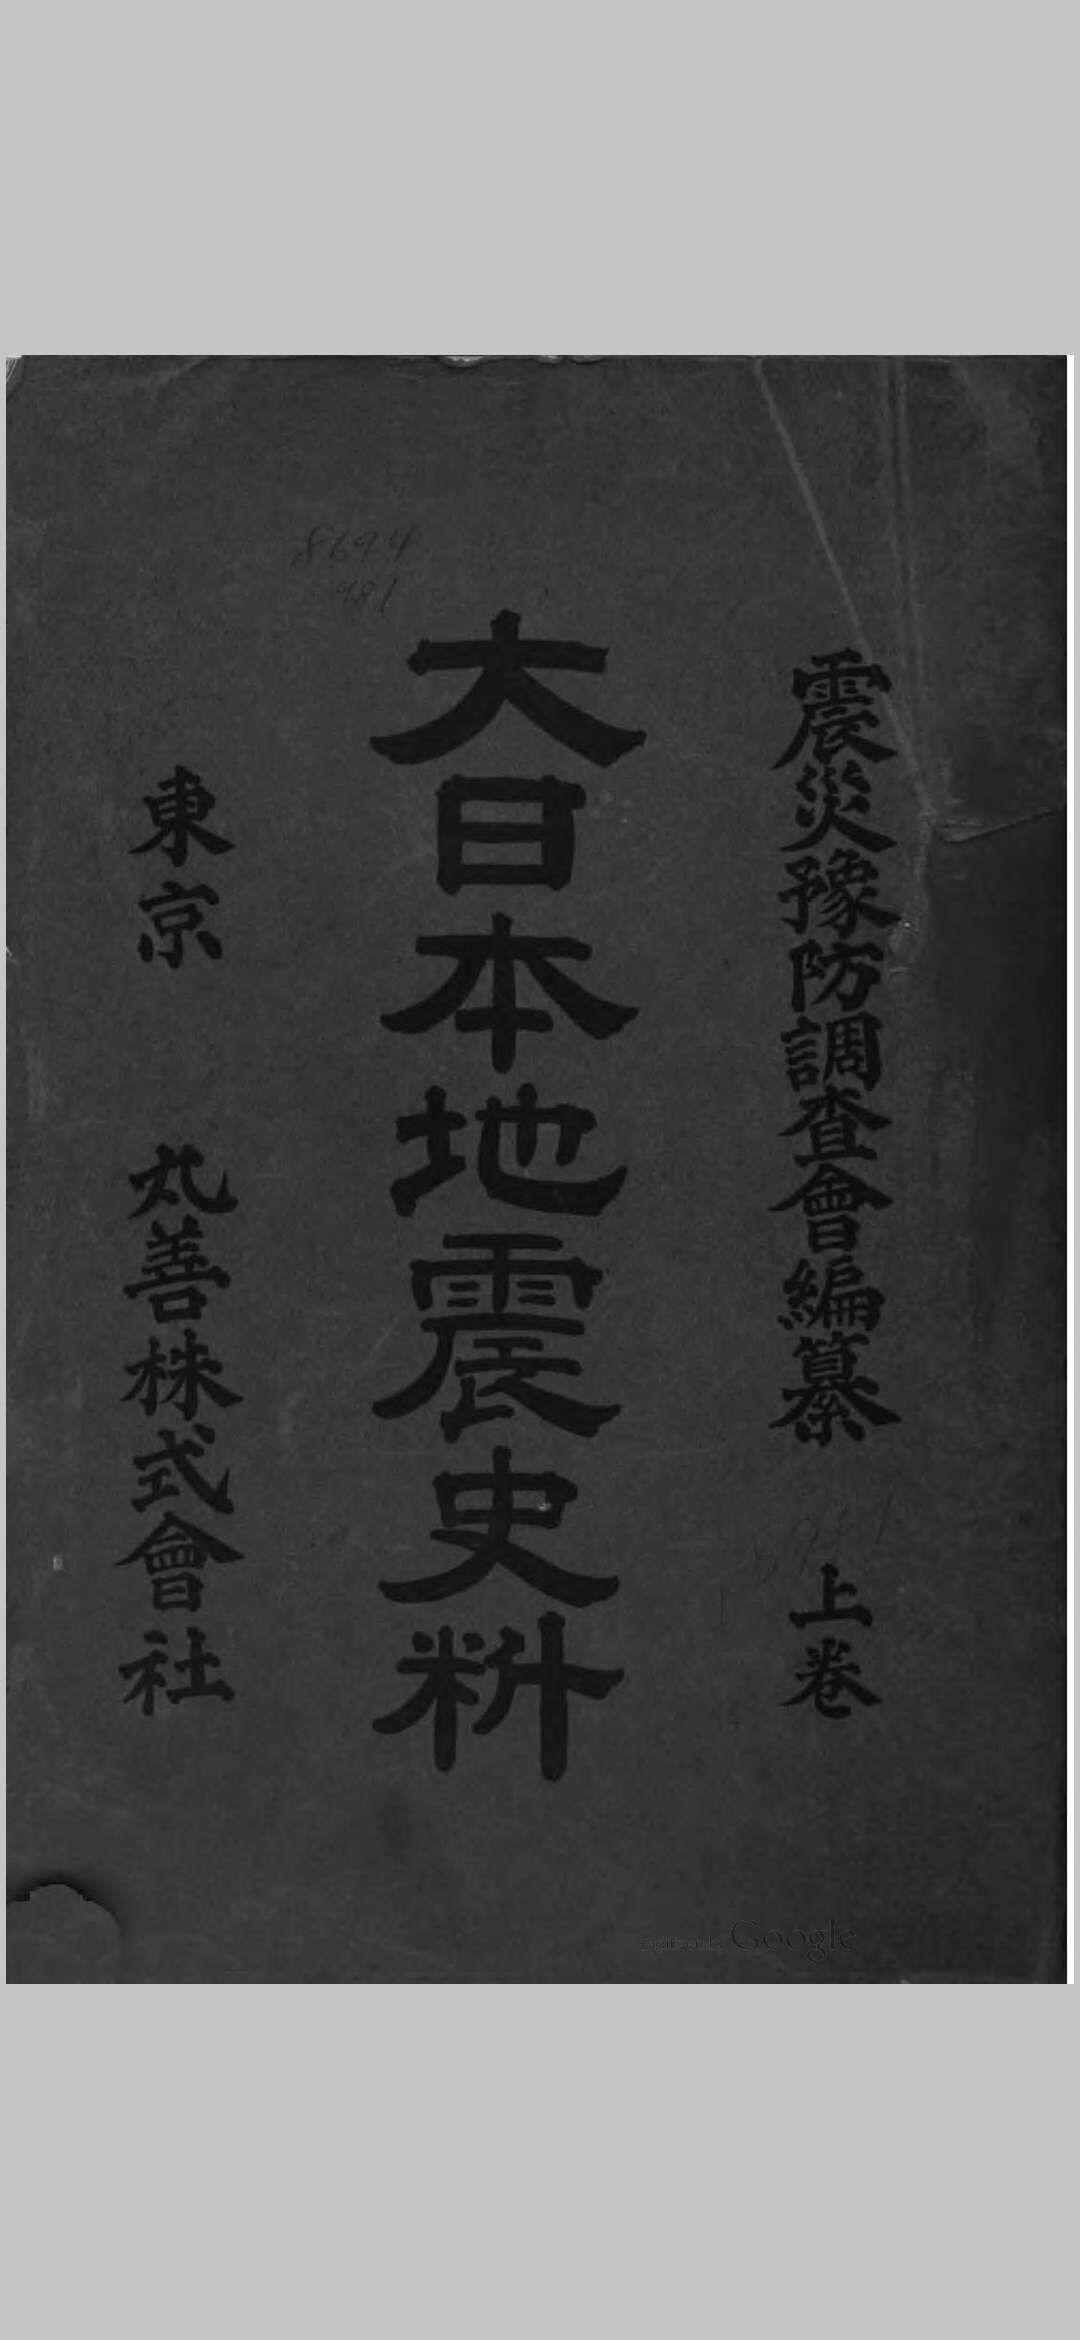 震災豫防調査會編纂 上卷
大日本地震史料
東京 丸善株式會社
8694
981
Google